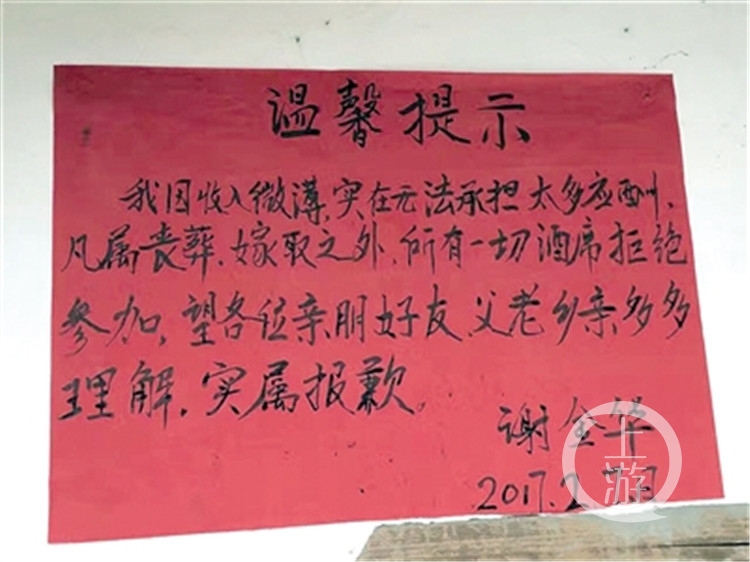 温馨提示
我因收入微薄,实在无法承担太多应酬,
凡属丧葬、嫁取之外,所有一切酒席拒绝
参加,望各位亲朋好友、父老乡亲多多
理解,实属报歉。
谢全华
2017.2
上游